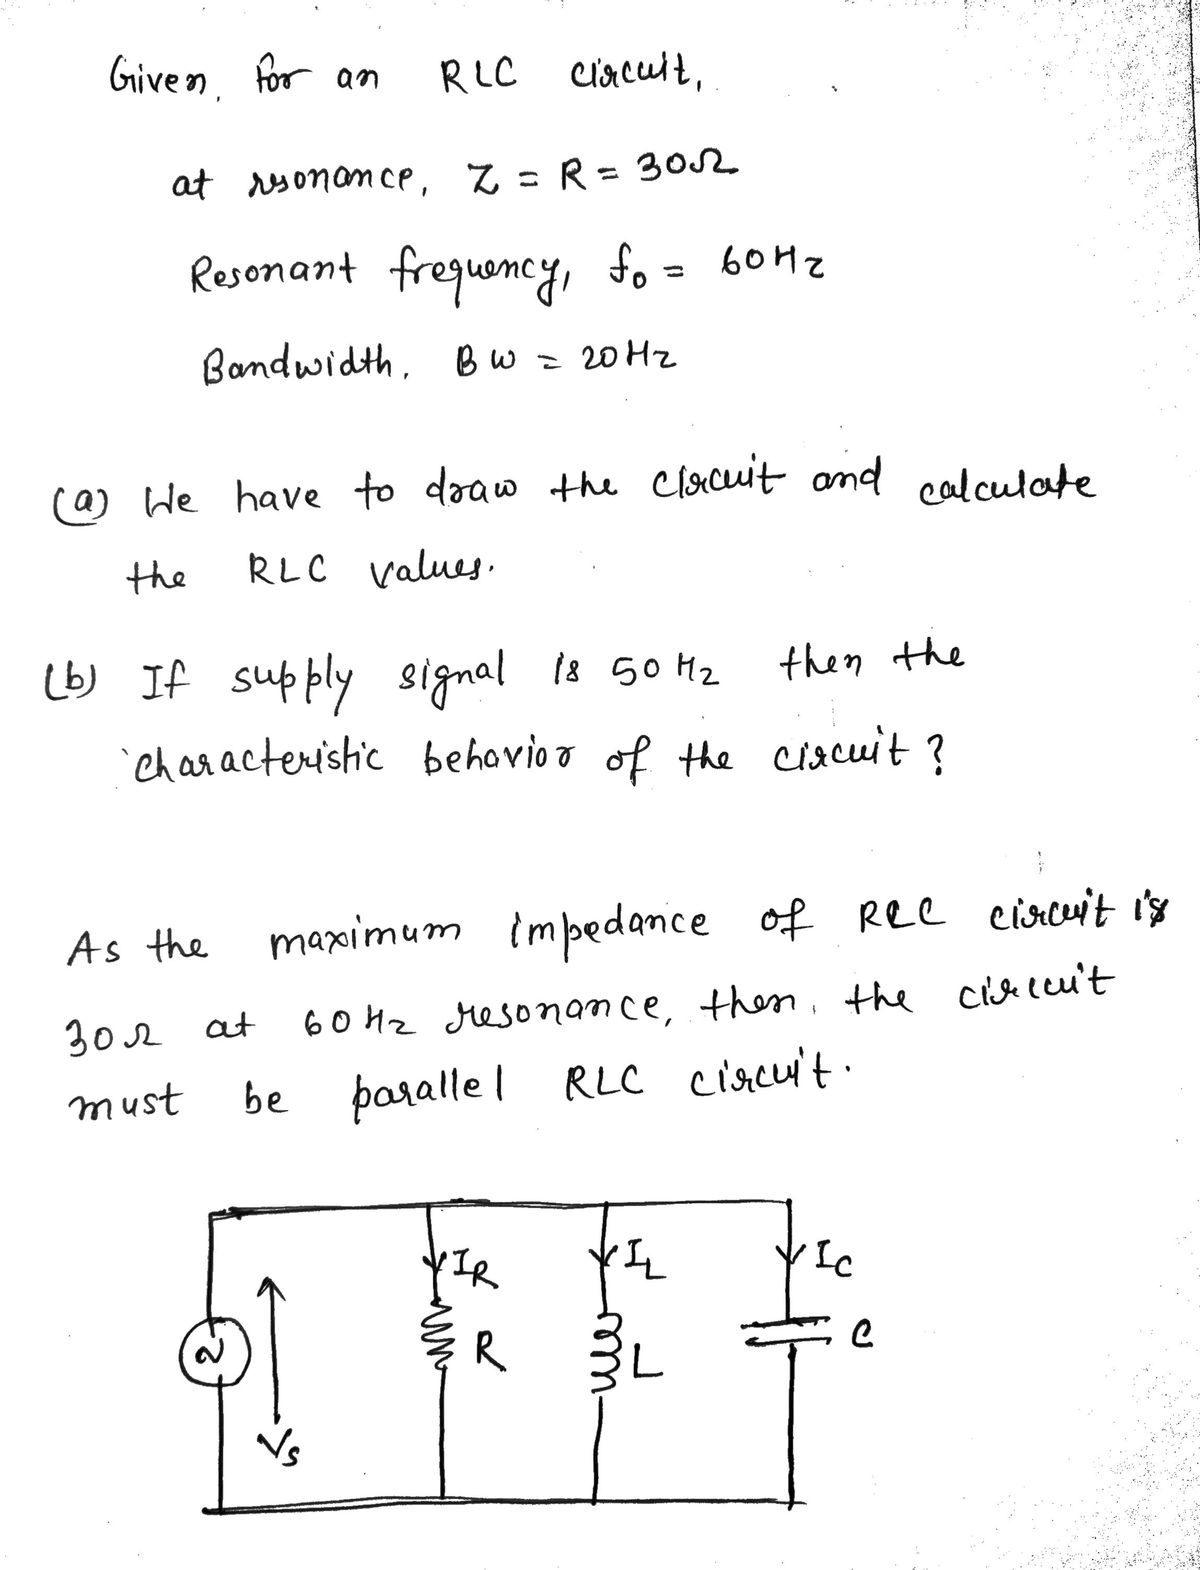 Given, for an RLC circuit,
at resonance, Z = R = 30Ω
Resonant frequency, f₀ = 60Hz
Bandwidth, BW = 20Hz
(a) We have to draw the circuit and calculate
the RLC values.
(b) If supply signal is 50 Hz then the
characteristic behavior of the circuit ?
As the maximum impedance of RLC circuit is
30Ω at 60 Hz resonance, then, the circuit
must be parallel RLC circuit.
I_R I_L I_C
~ R L C
V_s